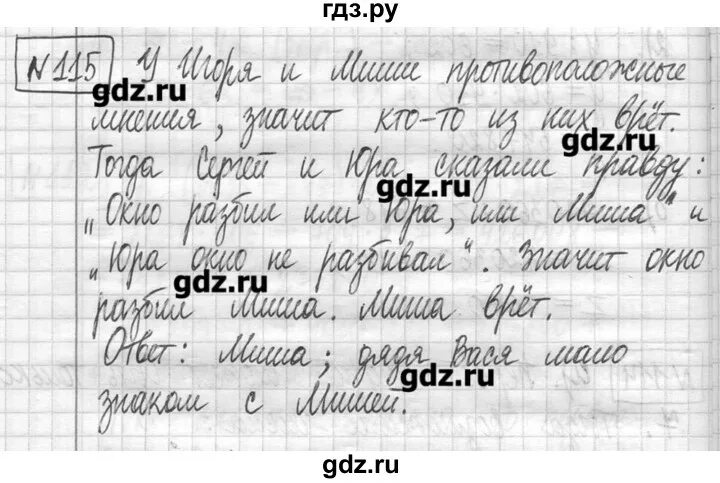 гдз.ру
№115 У Игоря и Миши противоположные
gdz.ru
мнения, значит кто-то из них врёт.
gdz.ru
Тогда Сергей и Юра сказали правду:
gdz.ru
„Окно разбил или Юра, или Миша“ и
„Юра окно не разбивал“. Значит окно
gdz.ru
разбил Миша. Миша врёт.
Ответ: Миша; дядя Вася мало
gdz.ru
знаком с Мишей.
gdz.ru